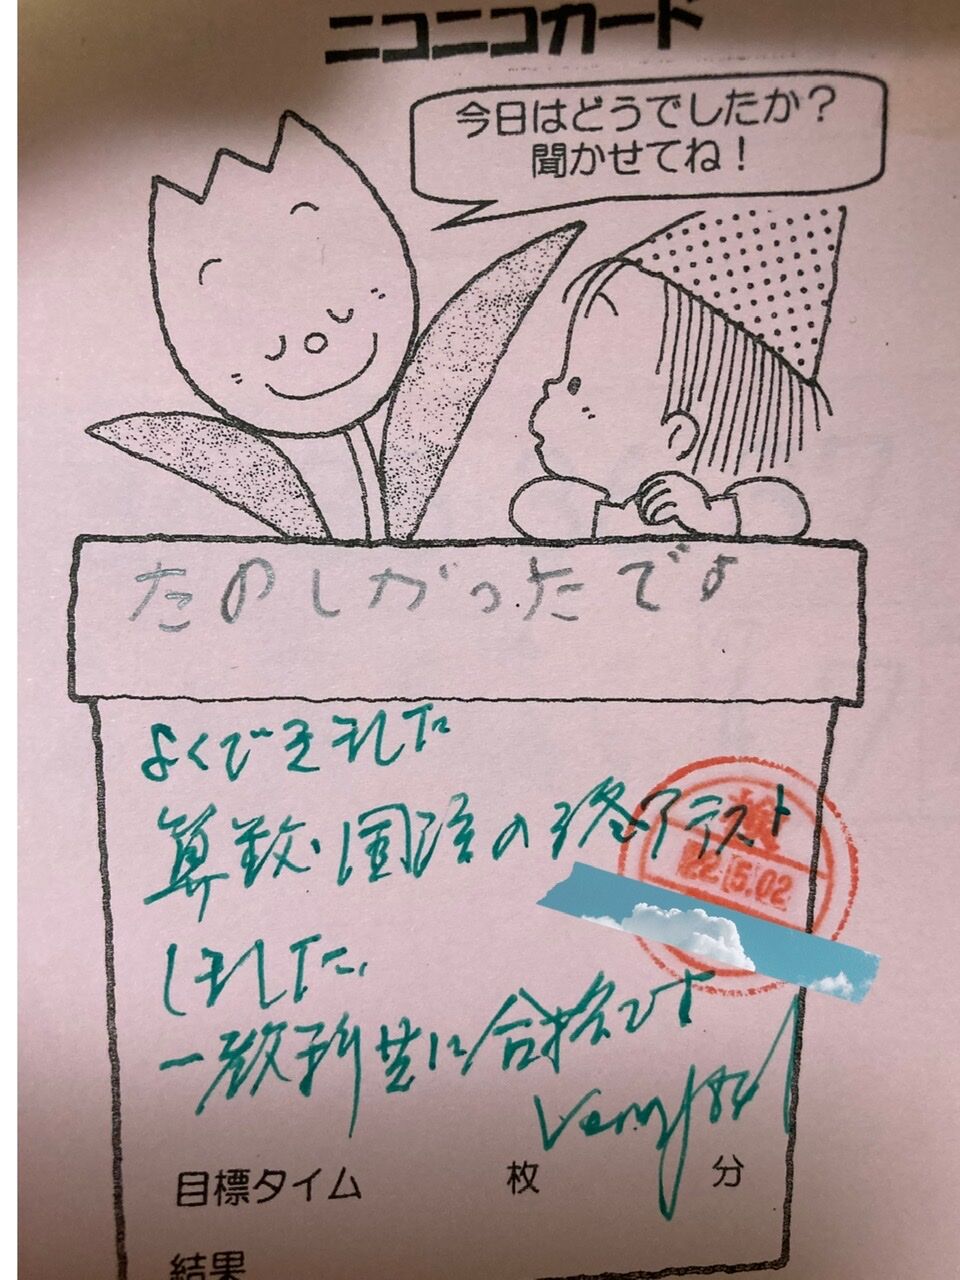 ニコニコカード
今日はどうでしたか?
聞かせてね!
たのしかったです
よくできました
算数・国語の終了テスト
検
22.5.02
しました。
教科共に合格です
Very good
目標タイム 枚 分
結果